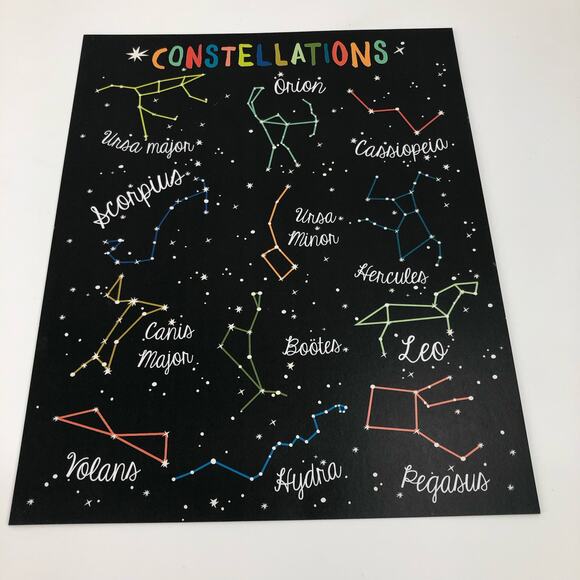 CONSTELLATIONS
Orion
Ursa major
Cassiopeia
Scorpius
Ursa
Minor
Hercules
Canis
Major
Boötes
Leo
Volans
Hydra
Pegasus